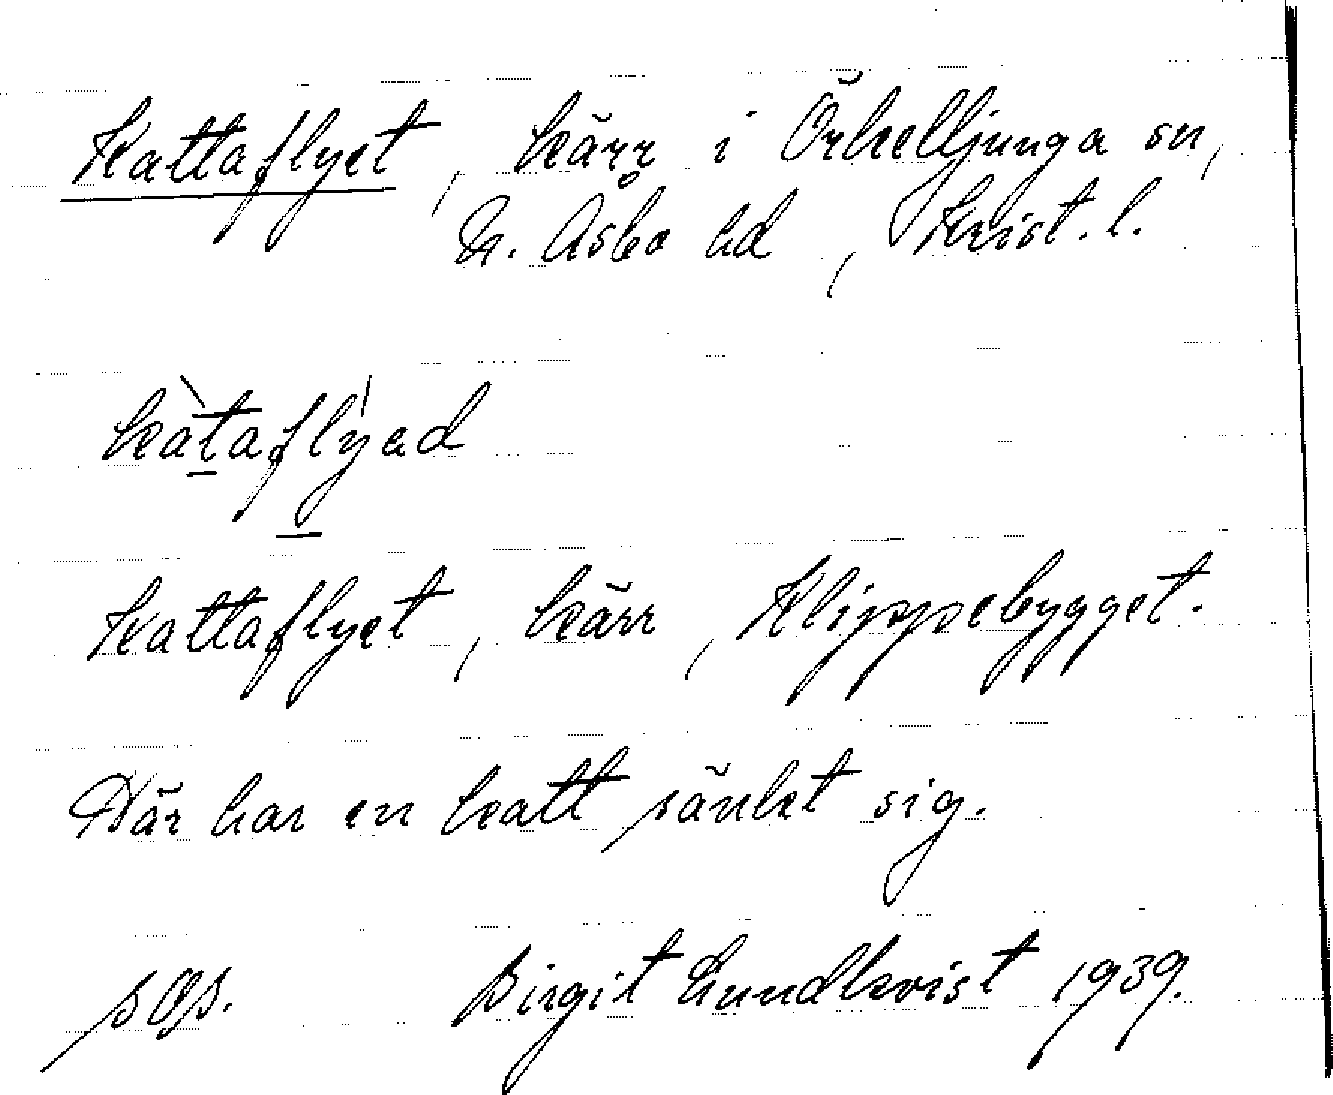 Kattaflyet, kärr i Örkelljunga sn,
N. Åsbo hd, Krist. l.
kàtaflýəd
Kattaflyet, kärr, Klippebygget.
Här har en katt sänkt sig.
Birgit Lundkvist 1939.